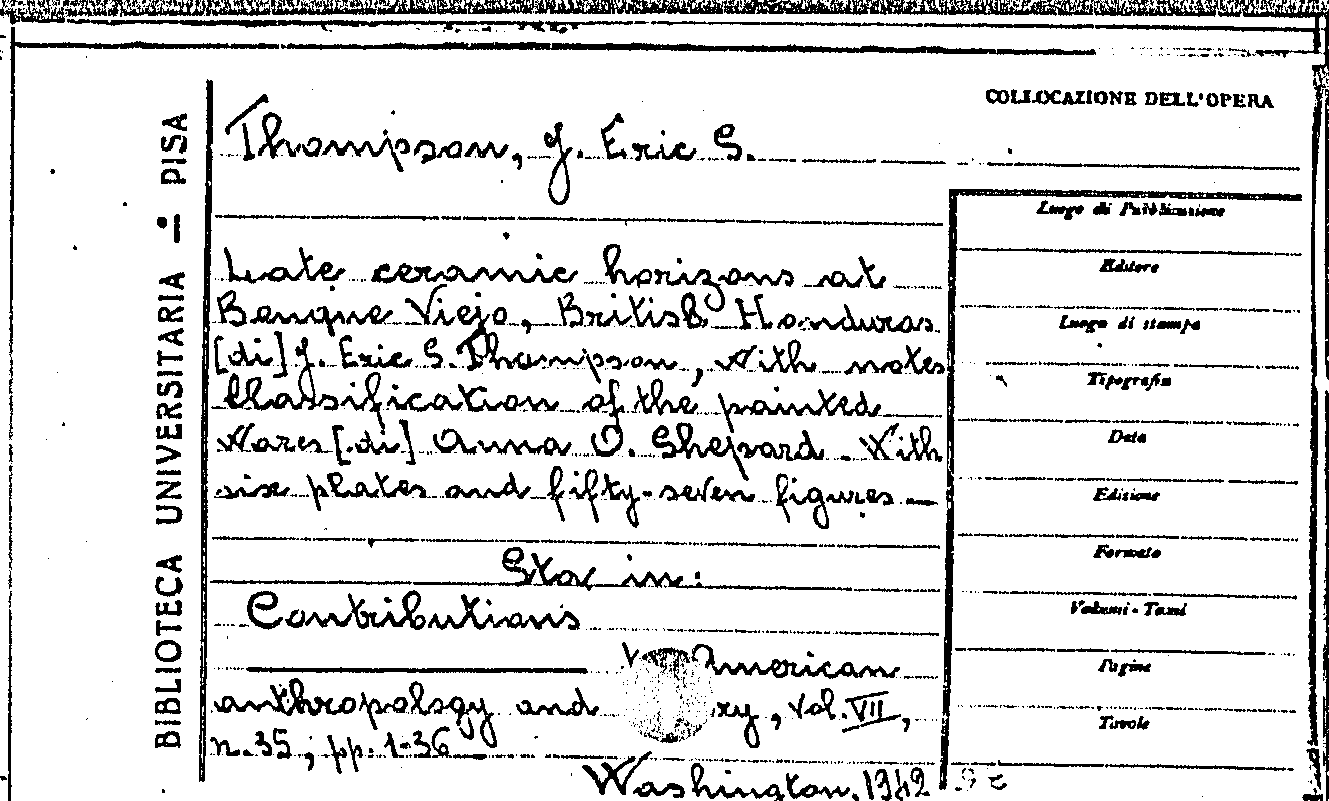 COLLOCAZIONE DELL'OPERA
BIBLIOTECA UNIVERSITARIA — PISA
Thompson, J. Eric S.
Late ceramic horizons at
Benque Viejo, British Honduras
[di] J. Eric S. Thompson, With notes
Classification of the painted
Wares [di] Anna O. Shepard. With
six plates and fifty-seven figures —
Sta in:
Contributions
American
anthropology and ry, Vol. VII,
n. 35, pp. 1-36
Washington, 1942
Luogo di Pubblicazione
Editore
Luogo di stampa
Tipografia
Data
Edizione
Formato
Volumi - Tomi
Pagine
Tavole